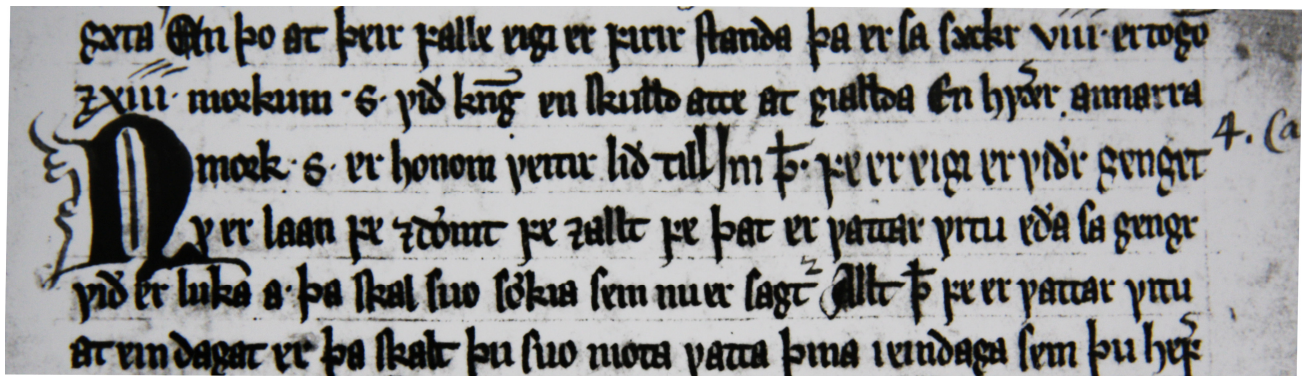 gæta En þo at þeir falle eigi er firir standa þa er sa sækr viii· ertogō
⁊ xiii· morkum · s· við kn̄g en skulld atte at giallda En hver annarra
mork · s· er honom veitir lið till Jm þ̄· fe er eigi er viðr genget
Ny er laan fe ⁊ dōmt fe ⁊ allt fe þat er vattar vitu eða sa gengr
við er luka a· þa skal suo sokia sem nu er sagt Allt þ̄ fe er vattar vitu
at eindagat er þa skalt þu suo niota vatta þina i eindaga sem þu hef̄
4. Ca